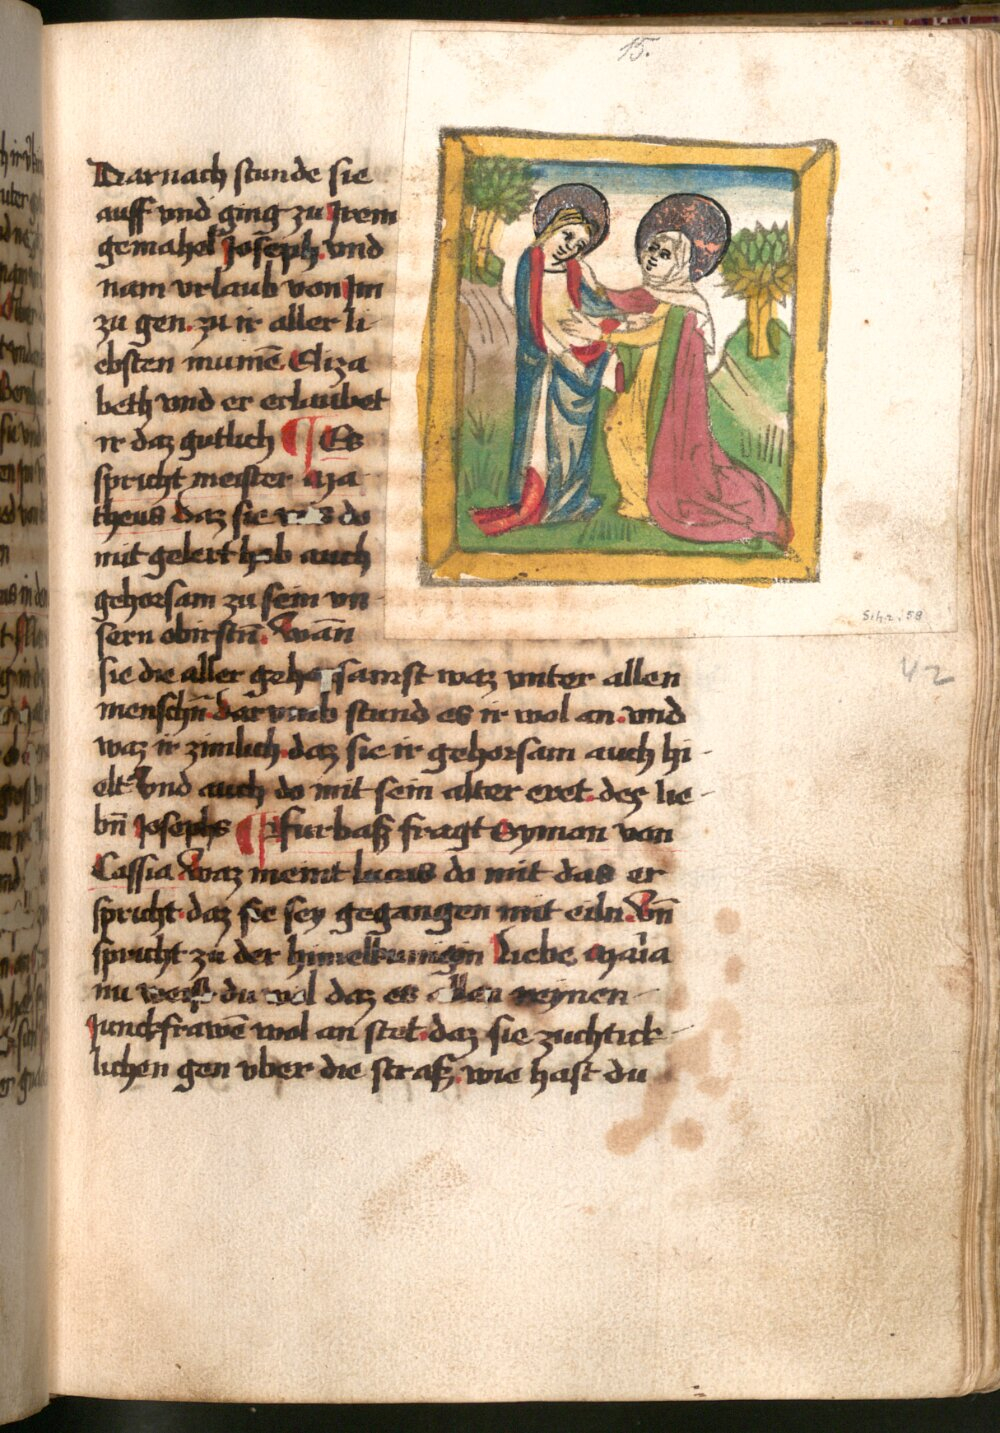 15.
Darnach stunde sie
auff vnd ging zu Irem
gemahel Joseph. vnd
nam vrlaub von Im
zu gen. zu ir aller li
ebsten mumē Eliza
beth vnd er erlaubet
ir daz gutlich ¶ Es
spricht meister Ma
theus daz sie vns do
mit gelert hab auch
gehorsam zu sein vn
sern obirstn̄. Wān
sie die aller gehorsamst waz vnter allen
menschn̄. darvmb stund es ir wol an. vnd
waz ir zimlich. daz sie ir gehorsam auch hi
elt Vnd auch do mit sein alter eret. des lie
bn̄ Josephs ¶ furbaß fragt Symon von
Cassia Waz meint lucas do mit das er
spricht. daz sie sey gegangen mit eiln. Vn̄
spricht zu der himelkunigin Liebe Maria
nu weist du wol daz es allen reynen
Junckfrawē wol an stet. daz sie zuchtick
lichen gen vber die straß. wie hast du
Schr. 58
42